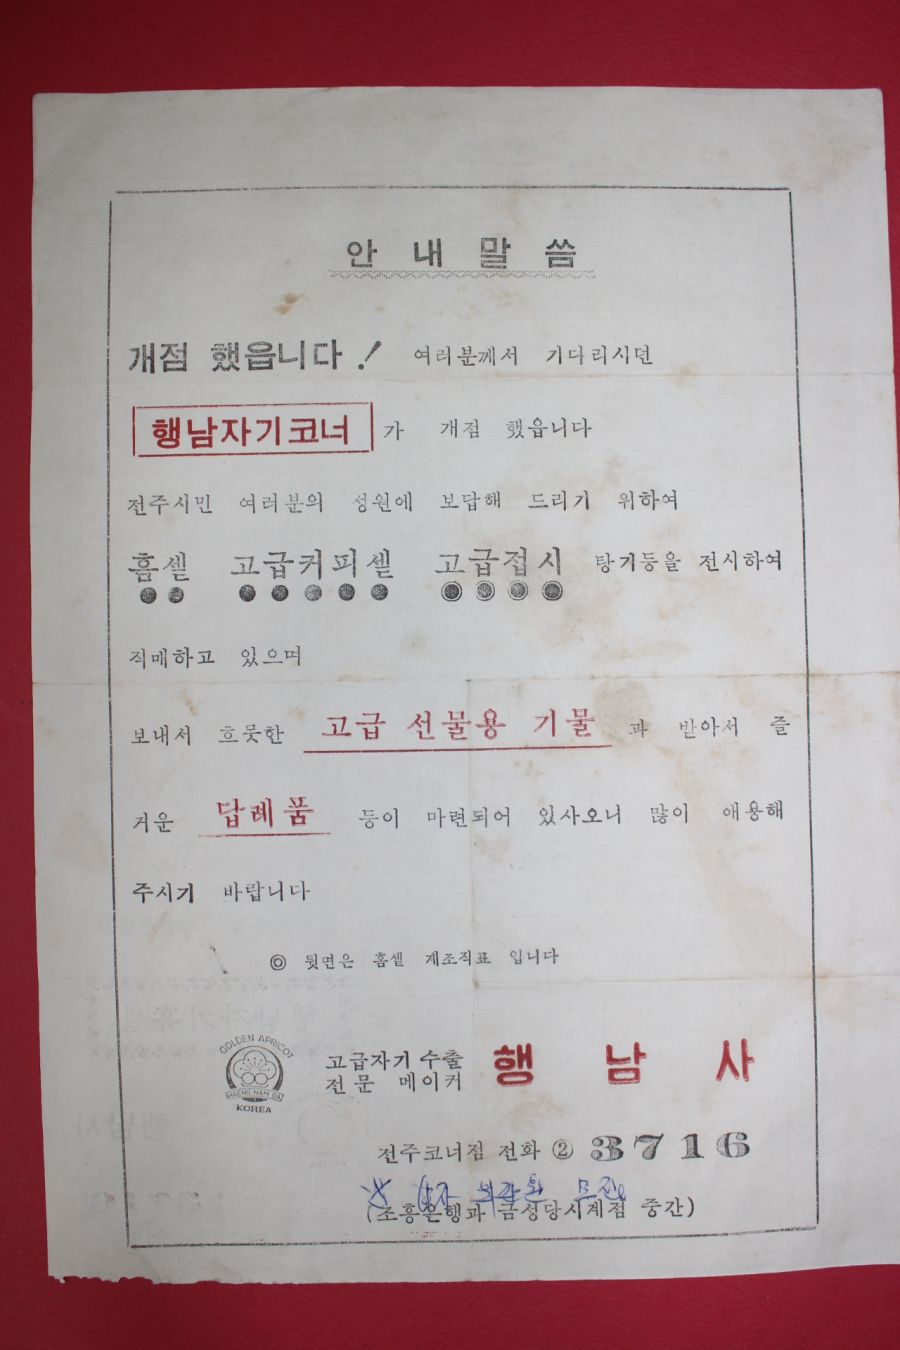 안내말씀
개점 했읍니다! 여러분께서 기다리시던
행남자기코너 가 개점 했읍니다
전주시민 여러분의 성원에 보답해 드리기 위하여
홈셑 고급커피셑 고급접시 탕기등을 전시하여
직매하고 있으며
보내서 흐뭇한 고급 선물용 기물 과 받아서 즐
거운 답례품 등이 마련되어 있사오니 많이 애용해
주시기 바랍니다
◎ 뒷면은 홈셑 제조직표 입니다
GOLDEN APRICOT
HAENG NAM SA
KOREA
고급자기 수출
전문 메이커
행남사
전주코너점 전화 ② 3716
(조흥은행과 금성당시계점 중간)